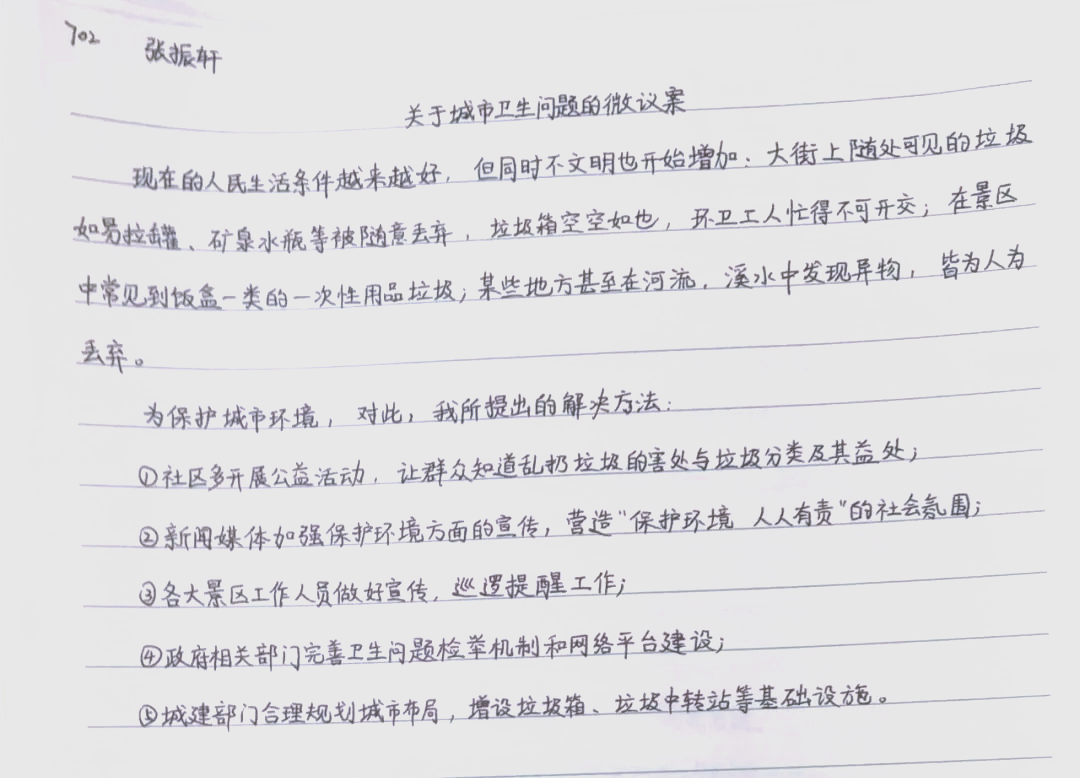 702 张振轩
关于城市卫生问题的微议案
现在的人民生活条件越来越好，但同时不文明也开始增加：大街上随处可见的垃圾
如易拉罐、矿泉水瓶等被随意丢弃，垃圾箱空空如也，环卫工人忙得不可开交；在景区
中常见到饭盒一类的一次性用品垃圾；某些地方甚至在河流，溪水中发现异物，皆为人为
丢弃。
为保护城市环境，对此，我所提出的解决方法：
①社区多开展公益活动，让群众知道乱扔垃圾的害处与垃圾分类及其益处；
②新闻媒体加强保护环境方面的宣传，营造“保护环境 人人有责”的社会氛围；
③各大景区工作人员做好宣传，巡逻提醒工作；
④政府相关部门完善卫生问题检举机制和网络平台建设；
⑤城建部门合理规划城市布局，增设垃圾箱、垃圾中转站等基础设施。